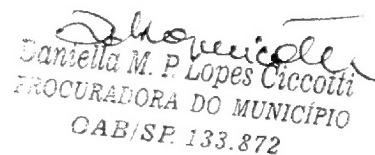 Daniella M. P. Lopes Ciccotti
PROCURADORA DO MUNICÍPIO
OAB/SP. 133.872